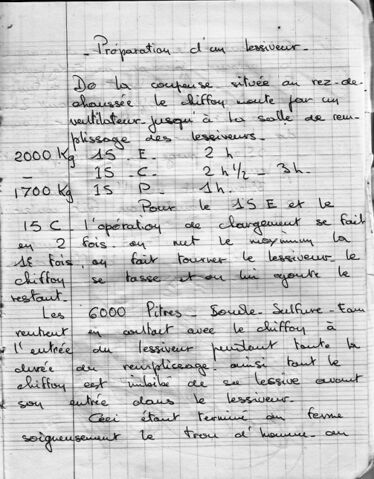 _ Préparation d'un lessiveur _
De la coupeuse située au rez-de-
chaussée le chiffon monte par un
ventilateur jusqu'à la salle de rem-
plissage des lessiveurs.
2000 Kg 15 . E. 2 h
_ 15 . C. 2 h 1/2 _ 3h.
1700 Kg 15 P. 1h.
Pour le 15 E et le
15 C l'opération de chargement se fait
en 2 fois. on met le maximum la
1è fois, on fait tourner le lessiveur le
chiffon se tasse et on lui ajoute le
restant.
Les 6000 litres _ Soude _ Sulfure _ Eau
rentrent en contact avec le chiffon à
l'entrée du lessiveur pendant toute la
durée du remplissage. ainsi tout le
chiffon est imbibé de sa lessive avant
son entrée dans le lessiveur.
Ceci étant terminé on ferme
soigneusement le trou d'homme. on